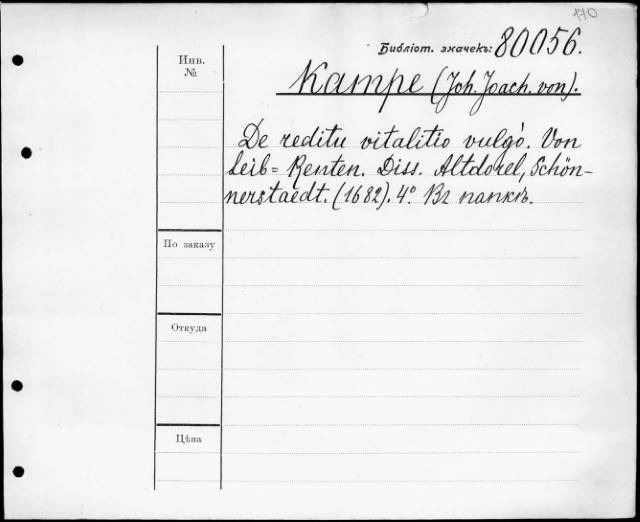 170
Библіот. значекъ: 80056.
Инв.
№
Kampe (Joh. Joach. von).
De reditu vitalitio vulgò. Von
Leib= Renten. Diss. Altdorel, Schön-
nerstaedt. (1682). 4º. Въ папкѣ.
По заказу
Откуда
Цѣна